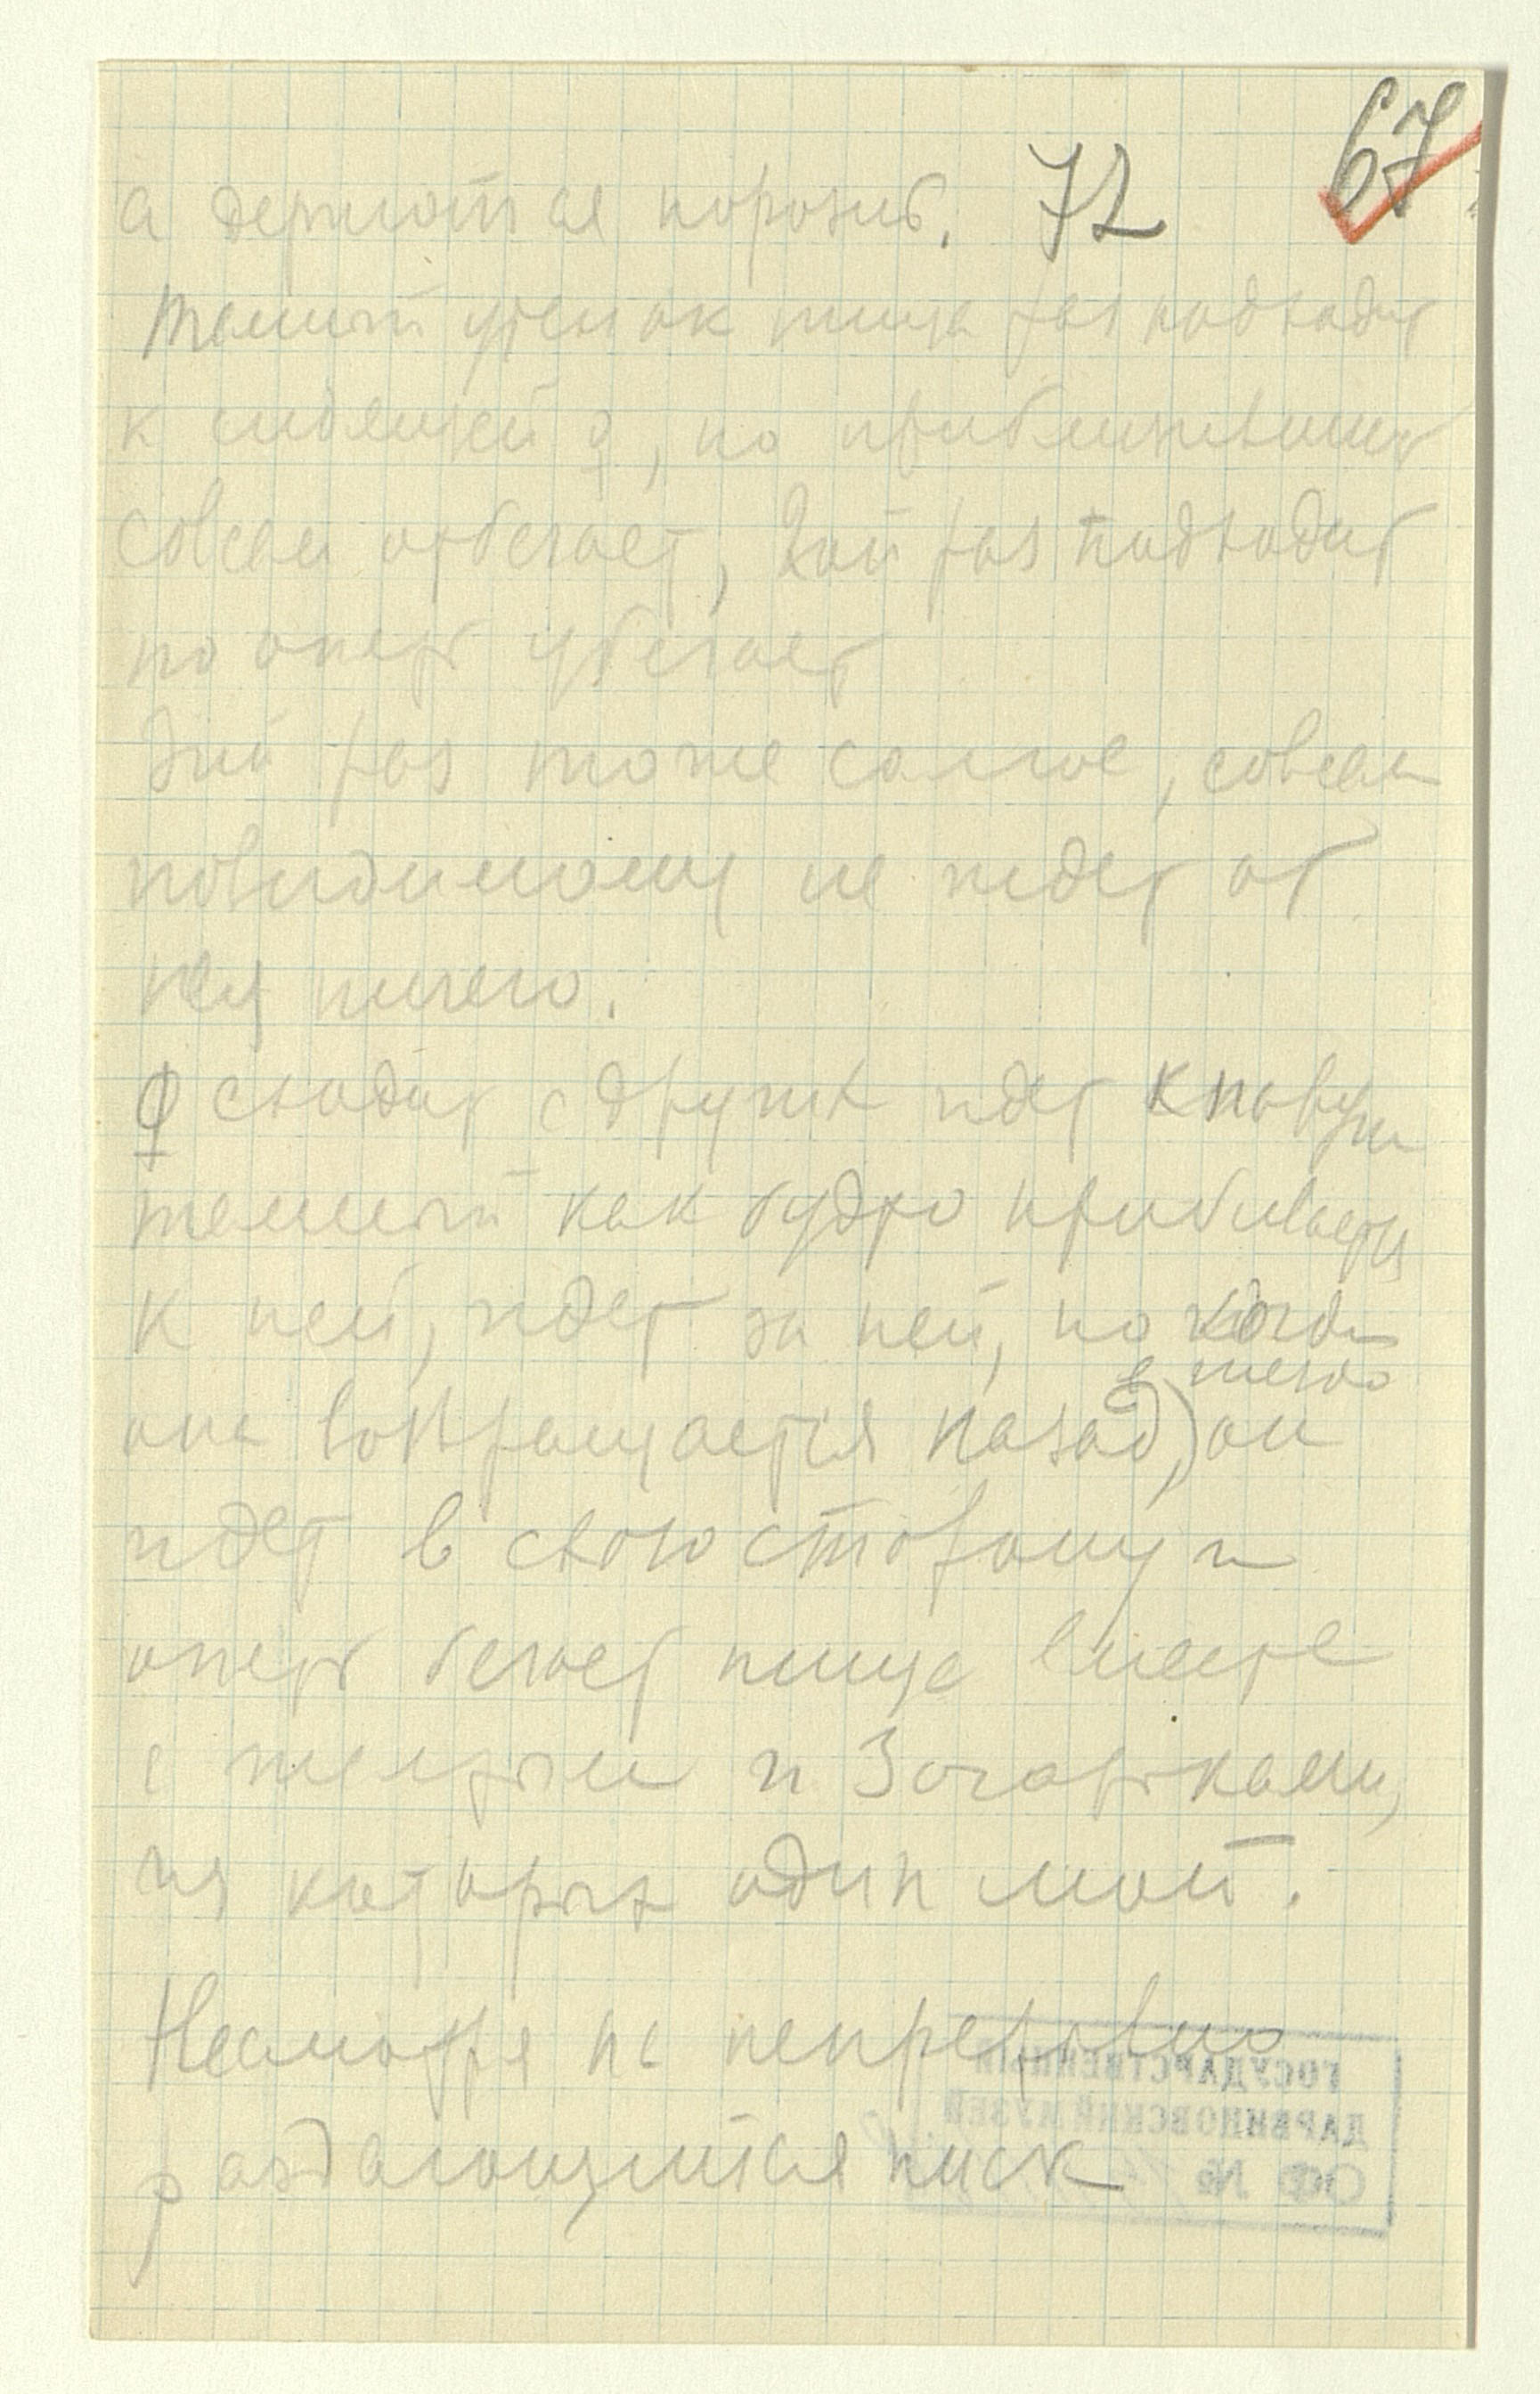 67
а держатся порознь. 72
темный утенок пища раз подходит
к сидящей ♀, но приблизившись
совсем отбегает, 2ой раз подходит
но опять убегает
3ий раз тоже самое, совсем
повидимому не ждет от
нея ничего.
♀ сходит с других идет к
темный как будто прибивается
к ней, идет за ней, но когда
в гнездо
она возвращается назад, он
идет в свою сторону и
опять бегает пища вместе
с желтым и 3
из которых один мой.
Несмотря на непрерывно
раздающийся писк
ГОСУДАРСТВЕННЫЙ
ДАРВИНОВСКИЙ МУЗЕЙ
ОФ №